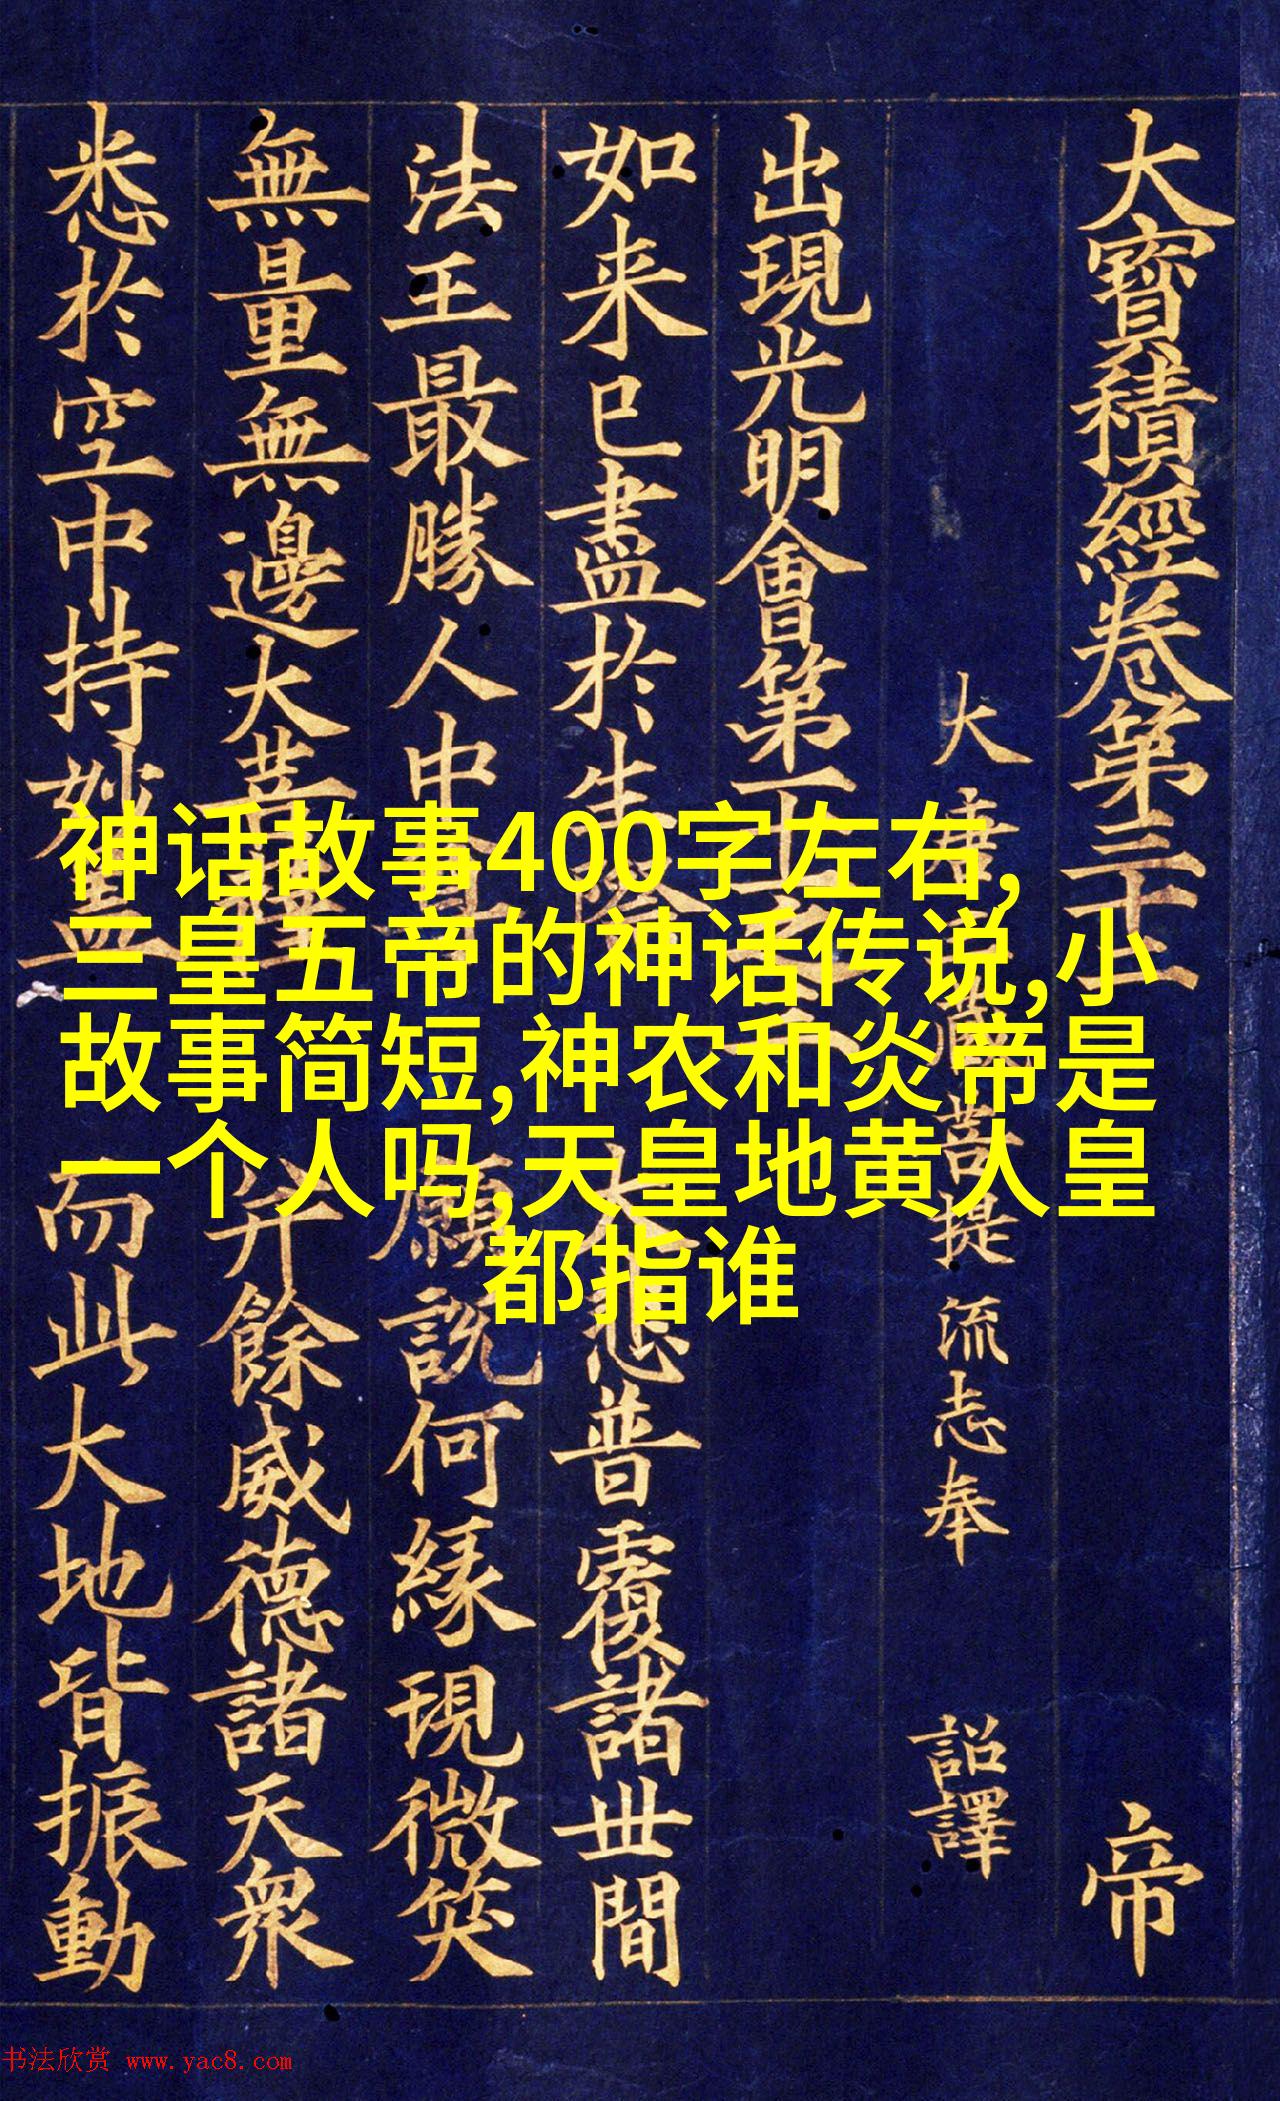 大寶積經卷第三十
帝
大
菩提流志奉
詔譯
出現光明會第十
如来已盡於
大悲普覆諸世間
法王最勝人中
願說何縁現微笑
無量無邊大菩薩
并餘威德諸天衆
悉於空中持妙盖
而此大地皆振動
神话故事400字左右,
三皇五帝的神话传说,小
故事简短,神农和炎帝是
一个人吗,天皇地黄人皇
都指谁
书法欣赏 www.yac8.com